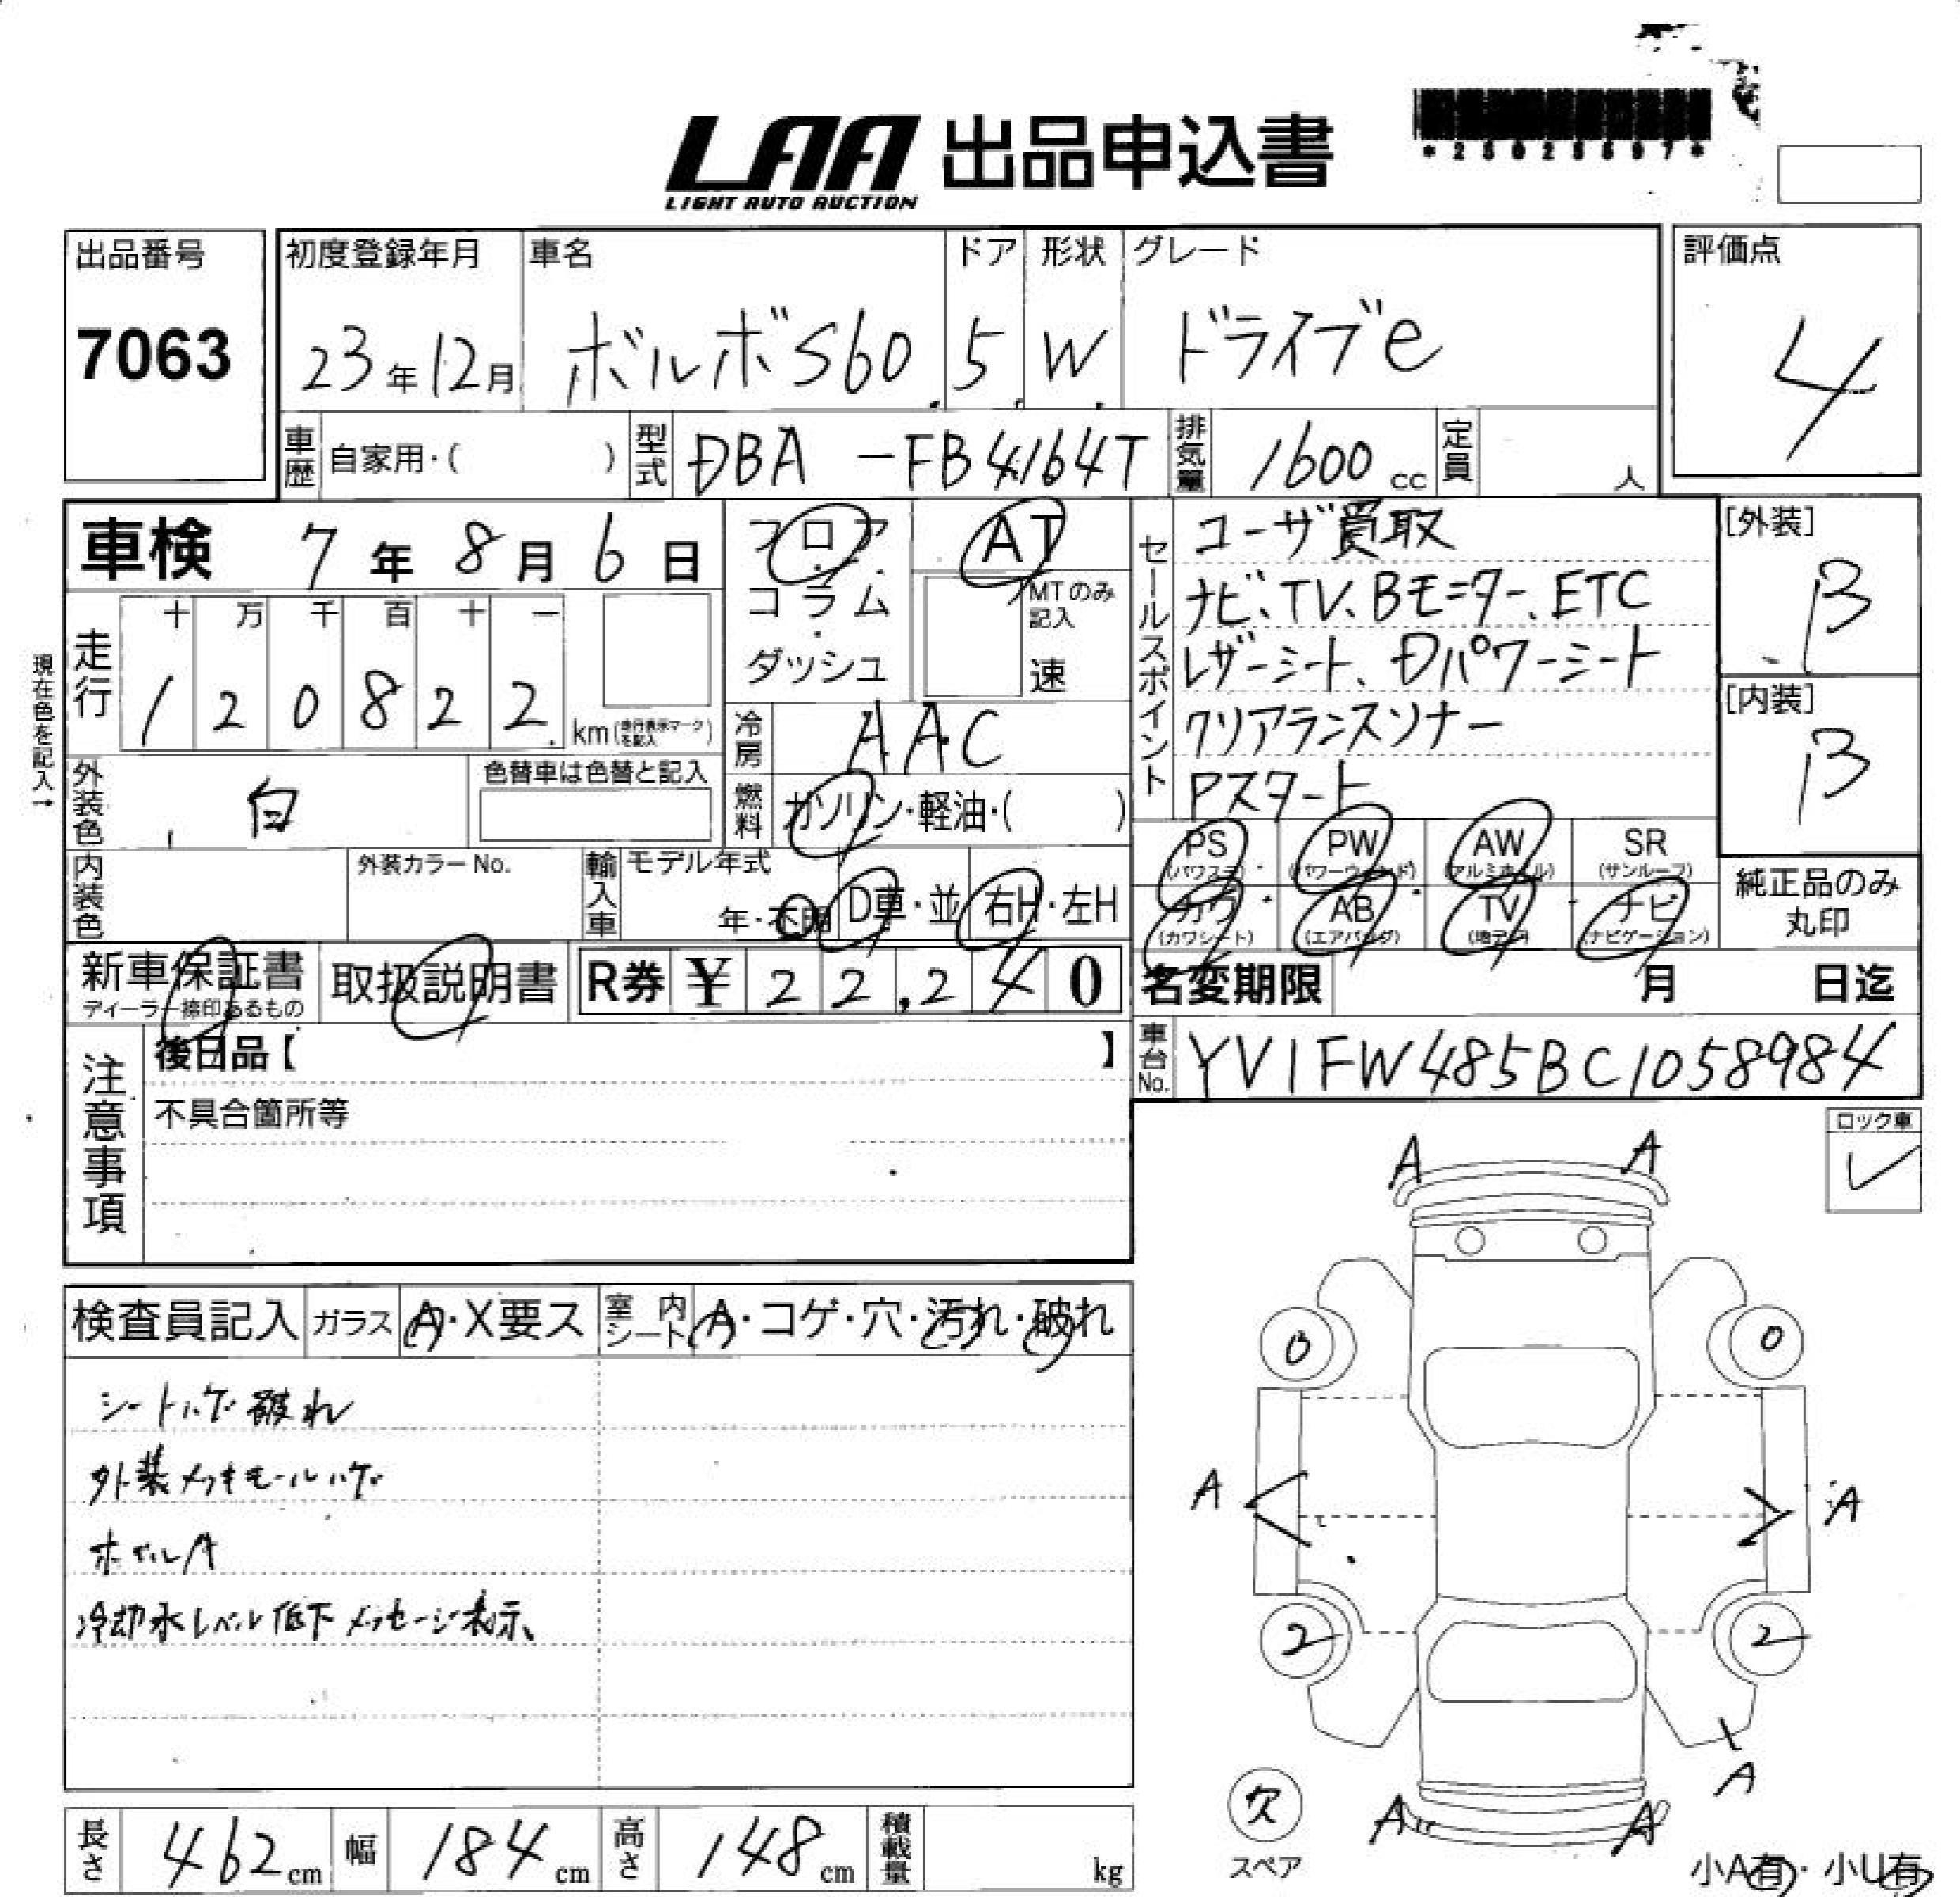 LAA 出品申込書
LIGHT AUTO AUCTION
*25025697*
出品番号
7063
初度登録年月
23年12月
車名
ボルボS60
ドア
5
形状
W
グレード
ドライブe
評価点
4
車歴 自家用・( )
型式 DBA -FB4164T
排気量 1600cc
定員 人
車検 7年8月6日
フロア・コラム・ダッシュ
AT
MTのみ記入
速
セールスポイント
ユーザ買取
ナビ、TV、Bモニター、ETC
レザーシート、Dパワーシート
クリアランスソナー
Pスタート
[外装]
B
[内装]
B
現在色を記入→
走行
十 万 千 百 十 一
1 2 0 8 2 2 km(走行表示マークを記入)
冷房 AAC
燃料 ガソリン・軽油・( )
外装色 白
色替車は色替と記入
内装色
外装カラーNo.
輸入車
モデル年式
年・不明
D車・並
右H・左H
PS (パワステ)
PW (パワーウィンド)
AW (アルミホイル)
SR (サンルーフ)
カワ (カワシート)
AB (エアバッグ)
TV (地デジ)
ナビ (ナビゲーション)
純正品のみ丸印
新車保証書
ディーラー捺印あるもの
取扱説明書
R券 ¥ 22,240
名変期限 月 日迄
車台No. YV1FW485BC1058984
注意事項
後日品【 】
不具合箇所等
ロック車
検査員記入
ガラス A・X要ス
室内シート A・コゲ・穴・汚れ・破れ
シートハゲ 破れ
外装メッキモールハゲ
ホイルA
冷却水レベル低下メッセージ表示
A A
0 0
A A
2 2
A
A A
欠
スペア
小A有・小U有
長さ 462cm
幅 184cm
高さ 148cm
積載量 kg